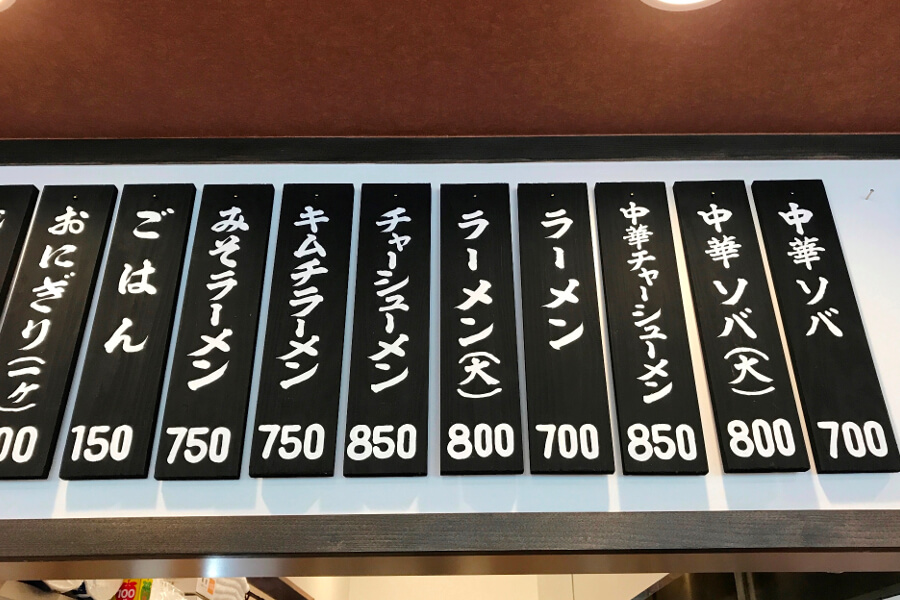 中華ソバ 700
中華ソバ(大) 800
中華チャーシューメン 850
ラーメン 700
ラーメン(大) 800
チャーシューメン 850
キムチラーメン 750
みそラーメン 750
ごはん 150
おにぎり(一ヶ) 00
100